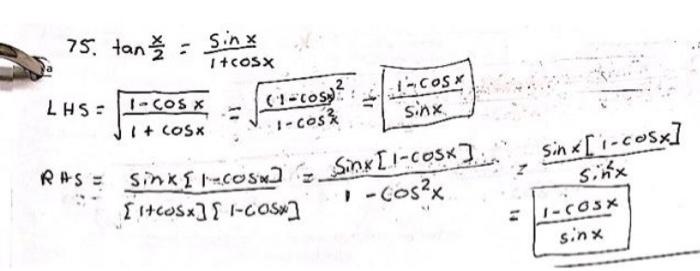 75. tan x/2 = sinx/1+cosx
LHS = √(1-cosx/1+cosx) = √((1-cosx)²/1-cos²x) = 1-cosx/sinx
RHS = sinx[1-cosx]/[1+cosx][1-cosx] = sinx[1-cosx]/1-cos²x = sinx[1-cosx]/sin²x
= 1-cosx/sinx